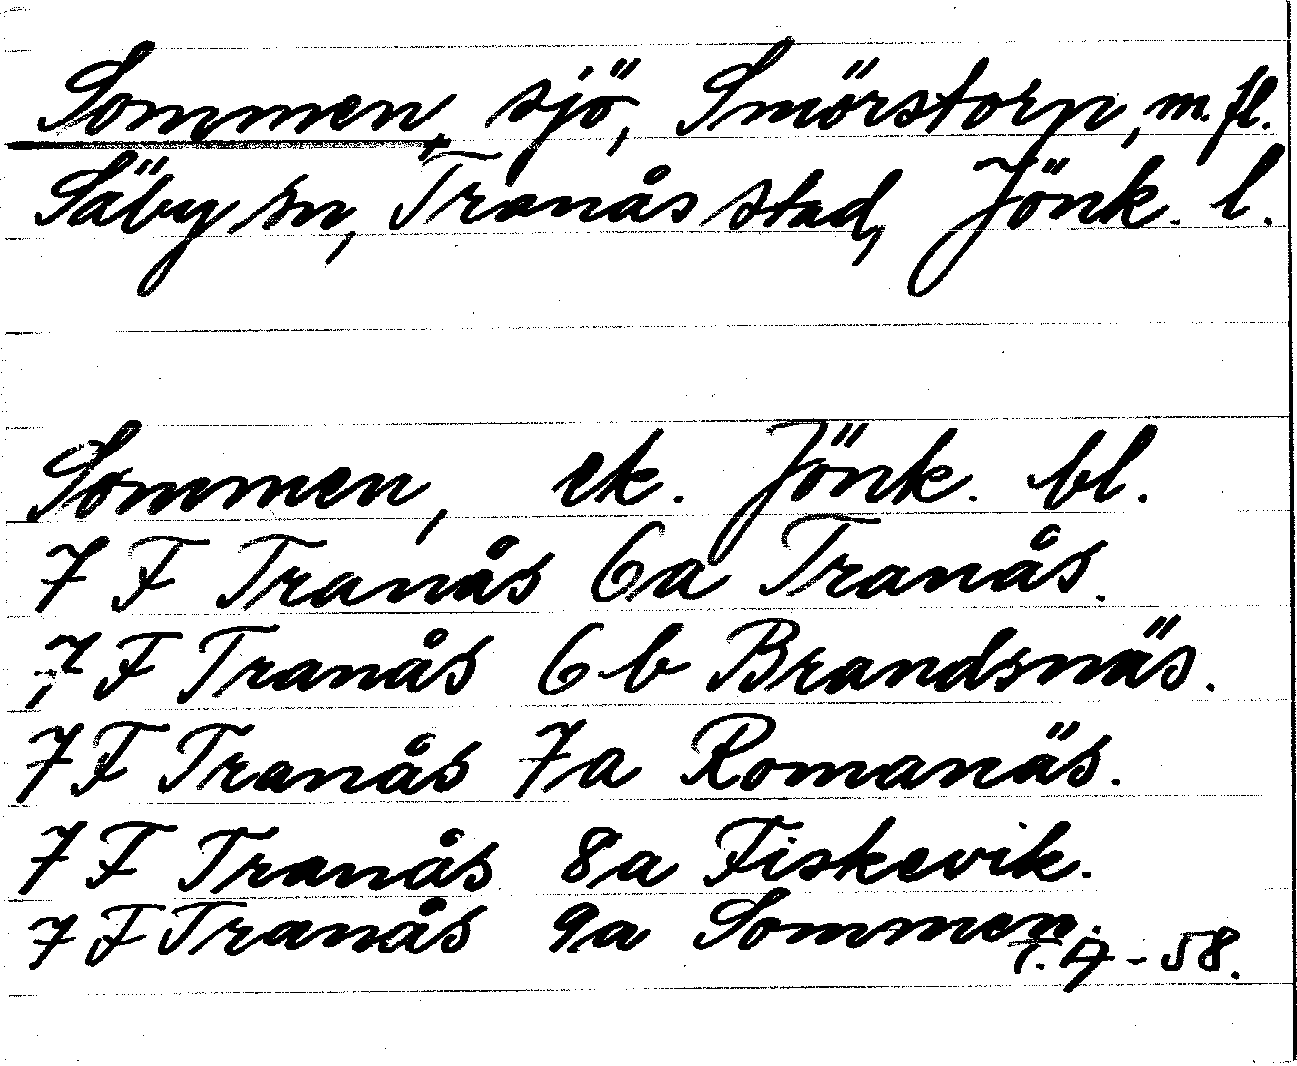 Sommen, sjö, Smörstorp, m. fl.
Säby sn, Tranås stad, Jönk. l.
Sommen, ek. Jönk. bl.
7 F Tranås 6a Tranås.
7 F Tranås 6 b Brandsnäs.
7 F Tranås 7a Romanäs.
7 F Tranås 8a Fiskevik.
7 F Tranås 9a Sommen.
T. A - 58.